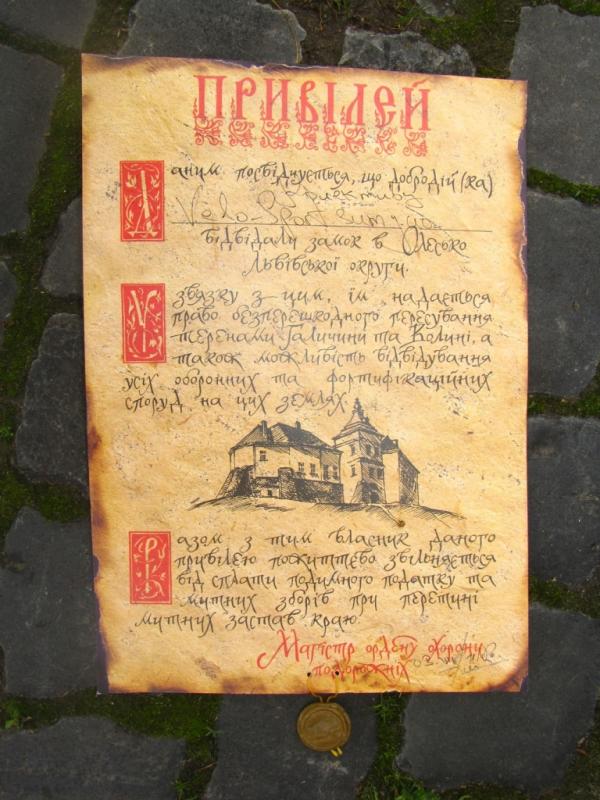 ПРИВІЛЕЙ
Даним посвідчується, що добродій (ка)
Velo-Sport
відвідали замок в Олесько
Львівської округи.
У звязку з цим, їм надається
право безперешкодного пересування
теренами Галичини та Волині, а
також можливість відвідування
усіх оборонних та фортифікаційних
споруд на цих землях.
Разом з тим власник даного
привілею пожиттєво звільняється
від сплати подимного податку та
митних зборів при перетині
митних застав краю.
Магістр ордену охорони
подорожніх